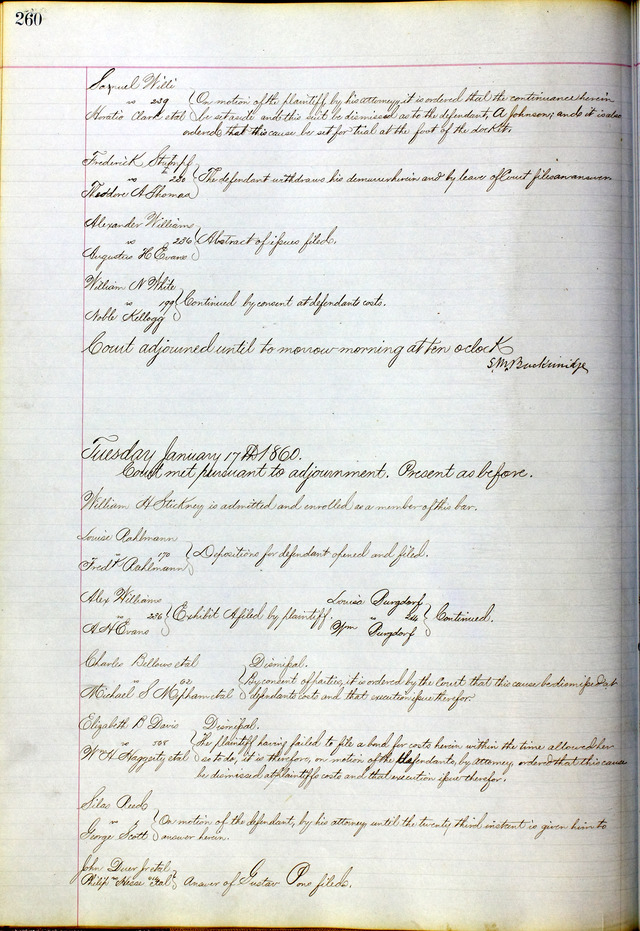 260
Samuel Willi
vs 239 On motion of the plaintiff by his attorney, it is ordered that the continuance herein
Horatio Clark etal be set aside and this suit be dismissed as to the defendant, A Johnson; and it is also
ordered that this cause be set for trial at the foot of the docket.
Frederick
vs 220 The defendant withdraws his demurer herein and by leave of Court files an answer
Theodore A Thomas
Alexander Williams
vs 236 Abstract of issues filed.
Augustus H Evans
William N White
vs 199 Continued by consent at defendants costs.
Noble Kellogg
Court adjourned until to morrow morning at ten o clock
S. M. Breckinridge
Tuesday January 17th 1860.
Court met pursuant to adjournment. Present as before.
William H Stickney is admitted and enrolled as a member of this bar.
Louise Rahlmann
vs 170 Depositions for defendant opened and filed.
Fredk Rahlmann
Alex Williams Louisa Burgdorf
vs 236 Exhibit A filed by plaintiff. vs 244 Continued.
A H Evans Wm Burgdorf
Charles Bellows etal Dismissal.
vs 62 By consent of parties, it is ordered by the Court that this cause be dismissed at
Michael S Mepham etal defendants costs and that execution issue therefor.
Elizabeth B Davis Dismissal.
vs 508 The plaintiff having failed to file a bond for costs herein within the time allowed her
W H Haggerty etal so to do, it is therefore, on motion of the defendants, by attorney, ordered that this cause
be dismissed at plaintiffs costs and that execution issue therefor.
Silas Reed
vs 7 On motion of the defendant, by his attorney until the twenty third instant is given him to
George Scott answer herein.
John Duer Jr etal
vs
Philip Hesse etal Answer of Gustav filed.